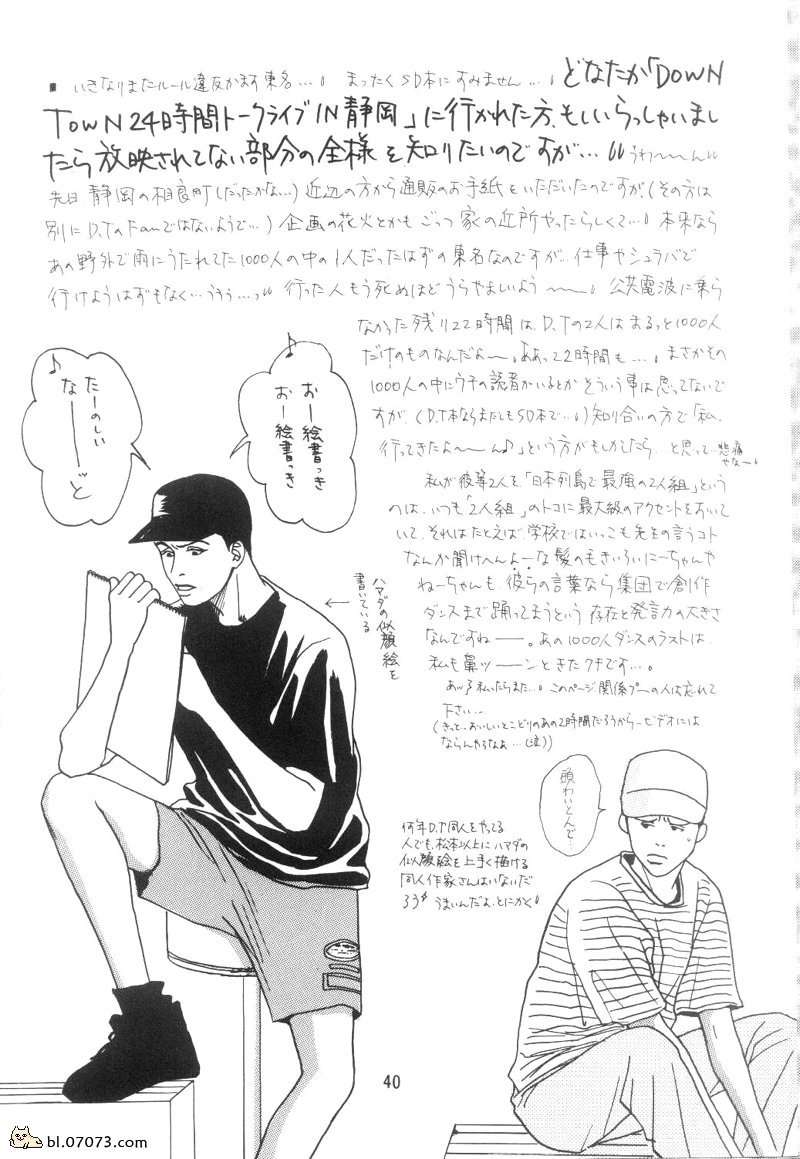 ■ いきなりまたルール違反かます東名…。 まったくSD本にすみません…。 どなたか「DOWN
TOWN 24時間トークライブ IN 静岡」に行かれた方、もしいらっしゃいまし
たら放映されてない部分の全様を知りたいのですが… うわ〜〜ん
先日 静岡の相良町(だったかな…)近辺の方から通販のお手紙をいただいたのですが(その方は
別にD.TのFanではないようで…) 企画の花火とかもごっつ家の近所やったらしくて…。本来なら
あの野外で雨にうたれてた1000人の中の1人だったはずの東名なのですが… 仕事やシュラバで
行けようはずもなく…うぅぅ…っ 行った人もう死ぬほどうらやましいよう〜〜。公共電波に乗ら
なかった残り22時間はD.Tの2人はまるっと1000人
だけのものなんだよ〜。ああっ22時間も…。まさかその
1000人の中にウチの読者がいるとかそういう事は思ってないで
すが(D.T本ならまだしもSD本で…)知り合いの方で「私、
行ってきたよ〜ん♪」という方がもしかしたら…と思って…悲痛
やな〜。
私が彼等2人を「日本列島で最強の2人組」という
のは、いつも「2人組」のトコに最大級のアクセントをおいて
いて、それはたとえば、学校ではいっこも先生の言うコト
なんか聞けへんよーな髪の毛きいろいにーちゃんや
ねーちゃんも 彼らの言葉なら集団で創作
ダンスまで踊ってまうという 存在と発言力の大きさ
なんですね――。あの1000人ダンスのラストは、
私も鼻ツ――ンときたクチです…。
あっ 私ったらまた…。このページ関係プーの人は忘れて
下さい…
(きっと、おいしいとこどりのあの2時間だろうから…ビデオには
ならんやろなぁ…(泣))
♪
たーのしい
なーーっと
♪
おー絵書っき
おー絵書っき
← ハマダの似顔絵を
書いている
頭わいとんで…
何年D.T同人をやってる
人でも、松本以上にハマダの
似顔絵を上手く描ける
同人作家さんはいないだ
ろう うまいんだよ、とにかく。
40
bl.07073.com